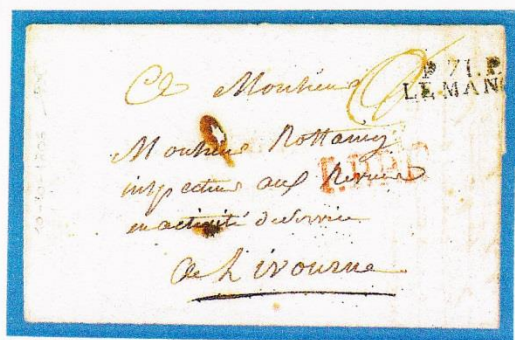 P. 71. P.
LE MAN
A Monsieur
Monsieur
inspecteur aux Revues
en activité de service
A Livourne